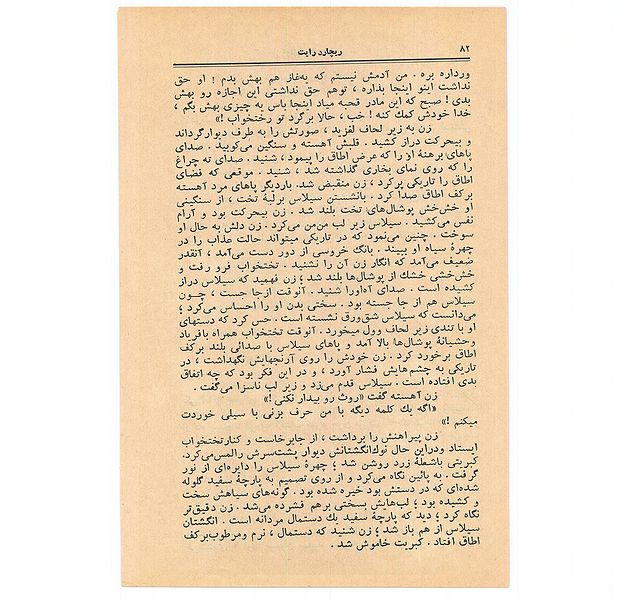 ۸۲
ریچارد رایت
ورداره بره . من آدمش نیستم که یه‌غاز هم بهش بدم ! او حق
نداشت اینو اینجا بذاره ، توهم حق نداشتی این اجازه رو بهش
بدی ! صبح که این مادر قحبه میاد اینجا باس یه چیزی بهش بگم ،
خدا خودش کمك کنه ! خب ، حالا برگرد تو رختخواب !»
زن به زیر لحاف لغزید ، صورتش را به طرف دیوار گرداند
و بیحرکت دراز کشید . قلبش آهسته و سنگین می‌کوبید . صدای
پاهای برهنهٔ او را که عرض اطاق را پیمود ، شنید . صدای ته چراغ
را که روی نمای بخاری گذاشته شد ، شنید . موقعی که فضای
اطاق را تاریکی پرکرد ، زن منقبض شد . باردیگر پاهای مرد آهسته
برکف اطاق صدا کرد . بانشستن سیلاس برلبهٔ تخت ، از سنگینی
او خش‌خش پوشال‌های تخت بلند شد . زن بیحرکت بود و آرام
نفس می‌کشید . سیلاس زیر لب من‌من می‌کرد . زن دلش به حال او
سوخت . چنین می‌نمود که در تاریکی میتواند حالت عذاب را در
چهرهٔ سیاه او ببیند . بانگ خروسی از دور دست می‌آمد ، آنقدر
ضعیف می‌آمد که انگار زن آن را نشنید . تختخواب فرو رفت و
خش‌خشی خشك از پوشال‌ها بلند شد ؛ زن فهمید که سیلاس دراز
کشیده است . صدای آه‌اورا شنید . آنوقت ازجا جست ، چـون
سیلاس هم از جا جسته بود . سختی بدن او را احساس می‌کرد ؛
می‌دانست که سیلاس شق‌ورق نشسته است . حس کرد که دستهای
او با تندی زیر لحاف وول میخورد . آنوقت تختخواب همراه بافریاد
وحشیانهٔ پوشال‌ها بالا آمد و پاهای سیلاس با صدائی بلند برکف
اطاق برخورد کرد . زن خودش را روی آرنجهایش نگهداشت ، در
تاریکی به چشم‌هایش فشار آورد ، و در این فکر بود که چه اتفاق
بدی افتاده است . سیلاس قدم می‌زد و زیر لب ناسزا می‌گفت .
زن آهسته گفت «روث رو بیدار نکنی !»
«اگه یك کلمه دیگه با من حرف بزنی با سیلی خوردت
میکنم !»
زن پیراهنش را برداشت ، از جابرخاست و کنارتختخواب
ایستاد ودراین حال نوك‌انگشتانش دیوار پشت‌سرش رالمس‌می‌کرد.
کبریتی باشعلهٔ زرد روشن شد ؛ چهرهٔ سیلاس را دایره‌ای از نور
گرفت . به پائین نگاه می‌کرد و از روی تصمیم به پارچهٔ سفید گلوله
شده‌ای که در دستش بود خیره شده بود . گونه‌های سیاهش سخت
و کشیده بود ؛ لب‌هایش بسختی برهم فشرده می‌شد . زن دقیق‌تر
نگاه کرد ؛ دید که پارچهٔ سفید یك دستمال مردانه است . انگشتان
سیلاس از هم باز شد ؛ زن شنید که دستمال ، نرم ومرطوب‌برکف
اطاق افتاد . کبریت خاموش شد .